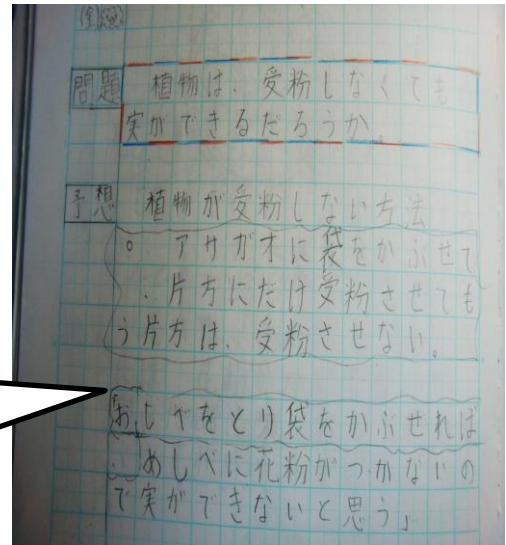 問題 植物は、受粉しなくても
実ができるだろうか。
予想 植物が受粉しない方法
。アサガオに袋をかぶせて
、片方にだけ受粉させても
う片方は、受粉させない。
「おしべをとり袋をかぶせれば
、めしべに花粉がつかないの
で実ができないと思う」